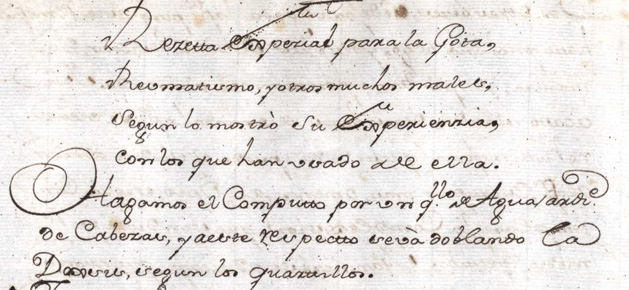 Rezetta Especial para la Gota,
Reomatismo, y otros muchos males,
segun lo mostrò su Experienzia,
con los que han usado de ella.
Hagamos el Computto por un q.llo de Agua ardi.e
de Cabezas, y a este respectto se và doblando la
Dosis, segun los quartillos.